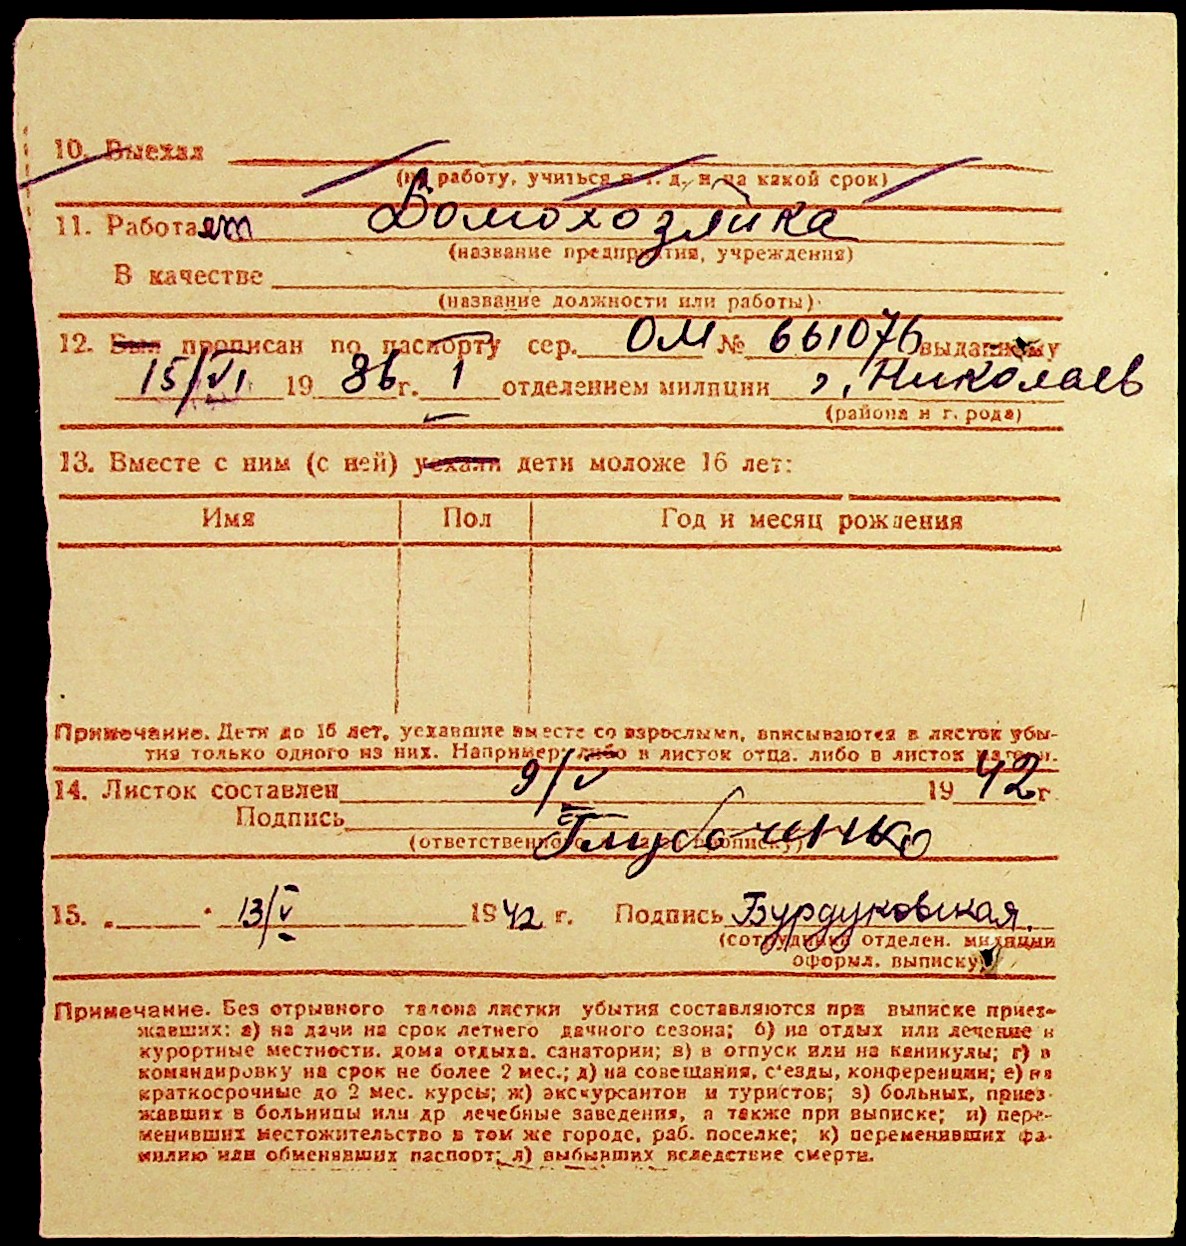 10. Выехал
(на работу, учиться и т. д. и на какой срок)
11. Работает Домохозяйка
(название предприятия, учреждения)
В качестве
(название должности или работы)
12. Был прописан по паспорту сер. ОМ № 661076 выданному
15/VI 1936 г. 1 отделением милиции г. Николаев
(района и города)
13. Вместе с ним (с ней) уехали дети моложе 16 лет:
Имя Пол Год и месяц рождения
Примечание. Дети до 16 лет, уехавшие вместе со взрослыми, вписываются в листок убы-
тия только одного из них. Например: либо в листок отца, либо в листок матери.
14. Листок составлен 9/V 1942 г
Подпись Глубоченко
(ответственного за прописку)
15. 13/V 1942 г. Подпись Бурдуковская.
(сотрудники отделен. милиции
оформл. выписку)
Примечание. Без отрывного талона листки убытия составляются при выписке приез-
жавших: а) на дачи на срок летнего дачного сезона; б) на отдых или лечение в
курортные местности, дома отдыха, санатории; в) в отпуск или на каникулы; г) в
командировку на срок не более 2 мес.; д) на совещания, с'езды, конференции; е) на
краткосрочные до 2 мес. курсы; ж) экскурсантов и туристов; з) больных, приез-
жавших в больницы или др лечебные заведения, а также при выписке; и) пере-
менивших местожительство в том же городе, раб. поселке; к) переменивших фа-
милию или обменявших паспорт; л) выбывших вследствие смерти.